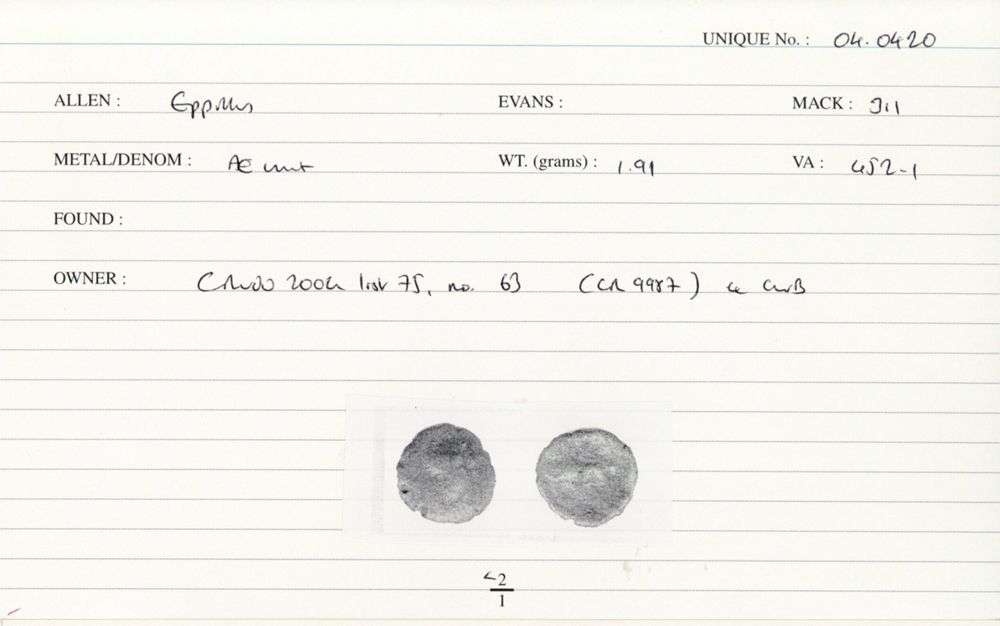 UNIQUE No. : 04.0420
ALLEN : Eppillus EVANS : MACK : 311
METAL/DENOM : Æ unit WT. (grams) : 1.91 VA : 452-1
FOUND :
OWNER : 2004 list 75, no. 63 (CR 9987)
<2
1